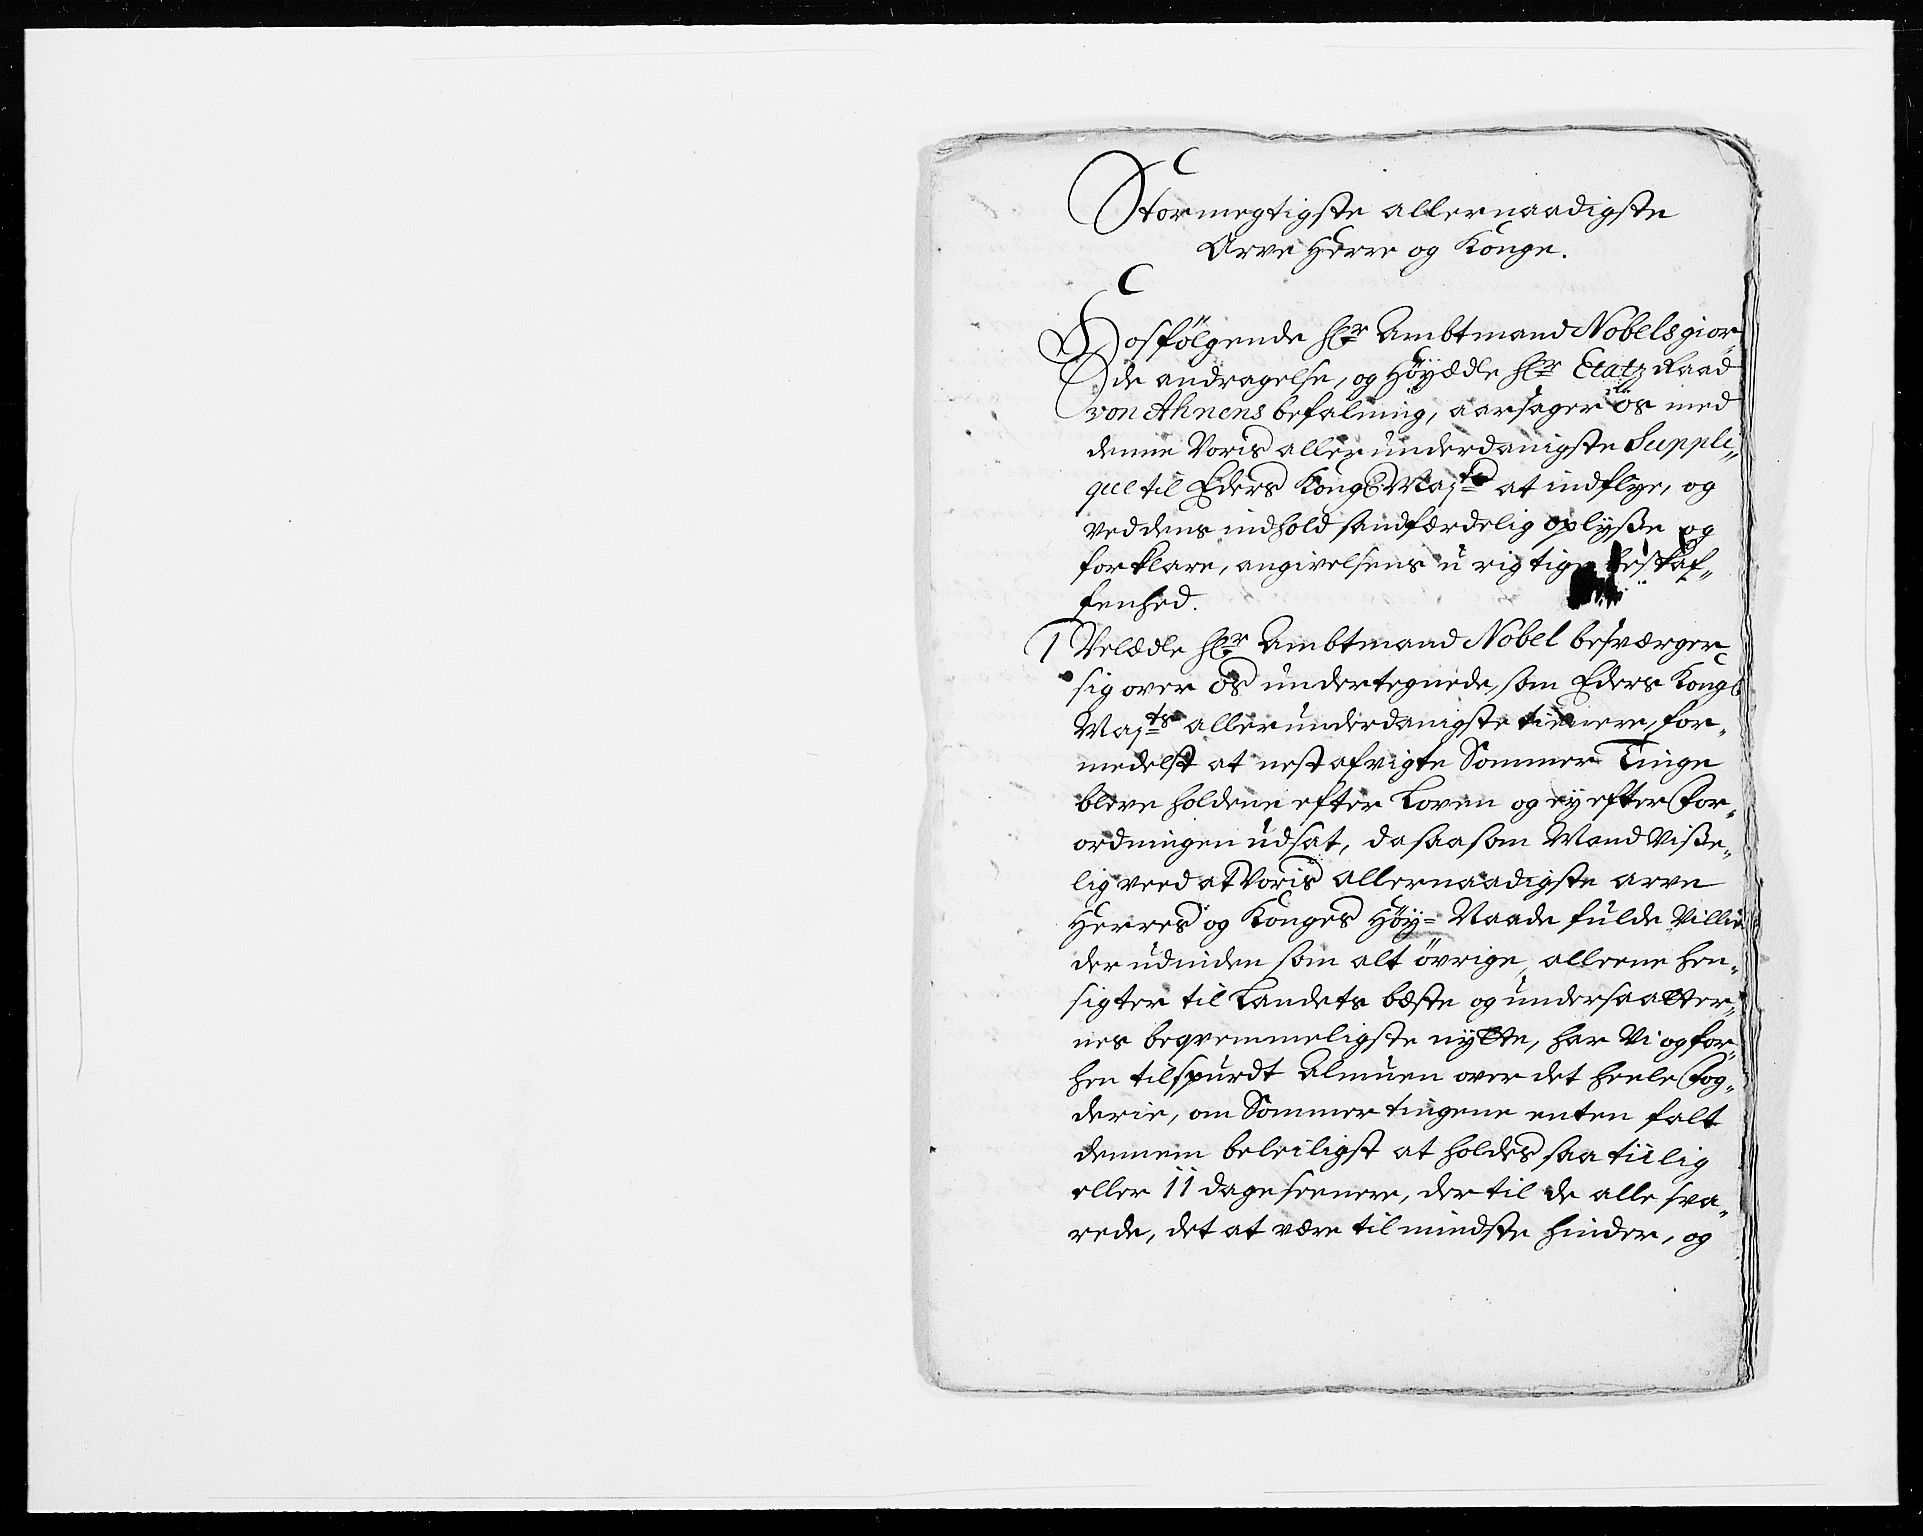 Stormegtigste allernaadigste
Arve Herre og Konge.
Hosfölgende hr Ambtmand Nobels gior
de andragelse, og Höyædle hr Etatz Raad
von Ahnens befalning, aarsager os med
denne Voris allerunderdanigste Suppli„
que til Eders Kongl Maj:ts at indflye, og
ved dens indhold sandfærdelig oplysse og
forklare, angivelsens u rigtige beskaf„
fenhed.
1 Velædle hr Ambtmand Nobel besværger
sig over os undertegnede, som Eders Kongl
Maj:ts allerunderdanigste tienere, for„
medelst at nest afvigte Sommer Tinge
bleve holdene efter Loven og ey efter For„
ordningen udsat, da saasom Mand Visse„
lig veed at Voris allernaadigste arve
Herres og Konges Höy= Naade fulde Villie
der udinden som alt övrige, alleene hen„
sigter til Landets bæste og undersaatter„
nes beqvemmeligste nytte, har Vi og for„
hen tilspurdt Almuen over det heele Fog„
derie, om Sommer tingene enten falt
dennem beleiligst at holdes saa tiilig
eller 11 dage seenere, der til de alle sva„
rede, det at være til mindste hinder, og